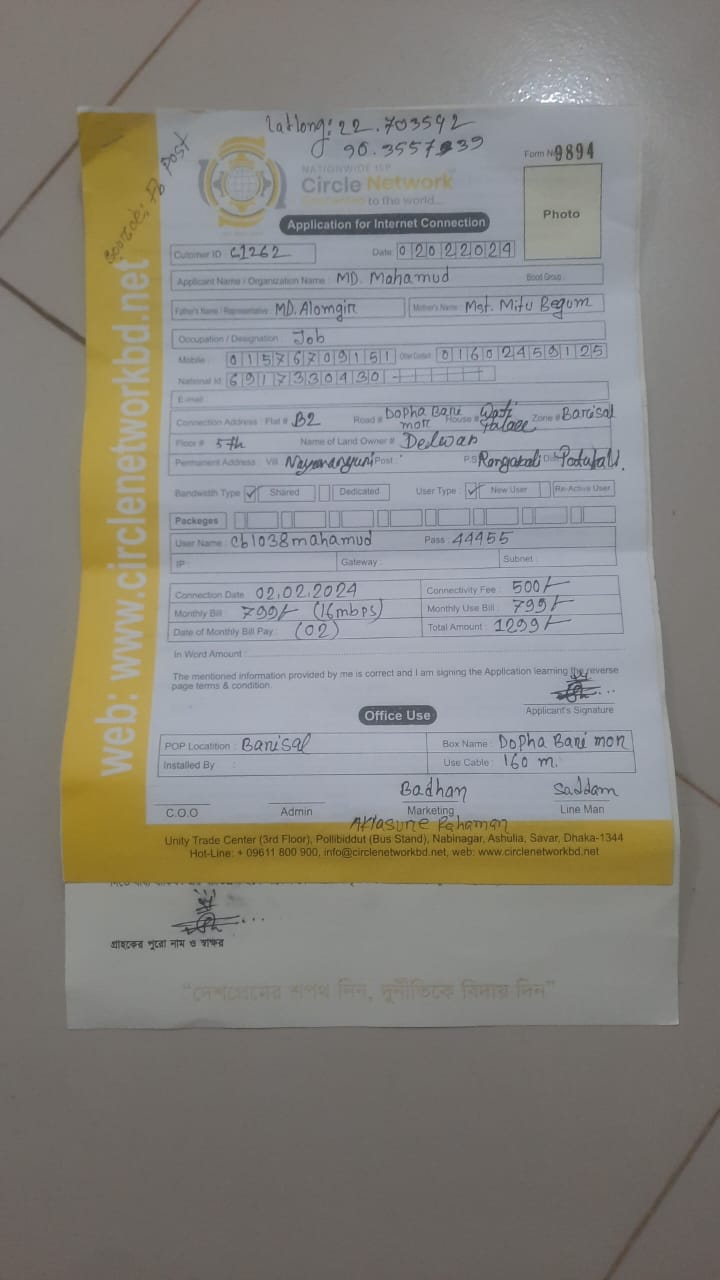 Latlong: 22.703592
90.3557939
Form No 9894
NATIONWIDE ISP
Circle Network
to the world...
Photo
Application for Internet Connection
Cutomer ID C1262 Date 02022024
Applicant Name / Organization Name : MD. Mahamud Blood Group :
Father's Name / Representative : MD. Alomgir Mother's Name : Mst. Mitu Begum
Occupation / Designation : Job
Mobile : 01576709151 Other Contact 01602459125
National Id 6917330430
E-mail
Connection Address : Flat # B2 Road # Dopha Bari mor House # Palace Zone # Barisal
Floor # 5th Name of Land Owner # Delwar
Permanent Address : Vill Post : P.S Rangabali Dist
Bandwidth Type ✓ Shared Dedicated User Type : ✓ New User Re-Active User
Packeges
User Name : cb1038mahamud Pass : 44455
IP : Gateway : Subnet :
Connection Date : 02.02.2024 Connectivity Fee : 500/-
Monthly Bill : 799/- (16mbps) Monthly Use Bill : 799/-
Date of Monthly Bill Pay : (02) Total Amount : 1299/-
In Word Amount :
The mentioned information provided by me is correct and I am signing the Application learning the reverse
page terms & condition.
Applicant's Signature
Office Use
POP Locatition : Barisal Box Name : Dopha Bari mor
Installed By : Use Cable : 160 m.
Badhan Saddam
C.O.O Admin Marketing Line Man
Rahaman
Unity Trade Center (3rd Floor), Pollibiddut (Bus Stand), Nabinagar, Ashulia, Savar, Dhaka-1344
Hot-Line: + 09611 800 900, info@circlenetworkbd.net, web: www.circlenetworkbd.net
web: www.circlenetworkbd.net
গ্রাহকের পুরো নাম ও স্বাক্ষর
“দেশপ্রেমের শপথ নিন, দুর্নীতিকে বিদায় দিন”